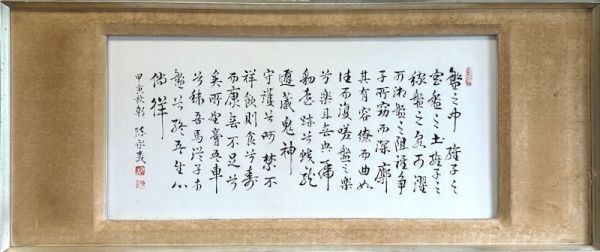 盤之中維子之
宮盤之土維子之
稼盤之泉可濯
可湘盤之阻誰爭
子所窈而深廓
其有容繚而曲如
往而復嗟盤之樂
兮樂且無央虎
豹遠跡兮蛟龍
遁藏鬼神
守護兮呵禁不
祥飲則食兮壽
而康無不足兮
奚所望膏吾車
兮秣吾馬從子于
盤兮終吾生以
徜徉
甲寅秋 陳永